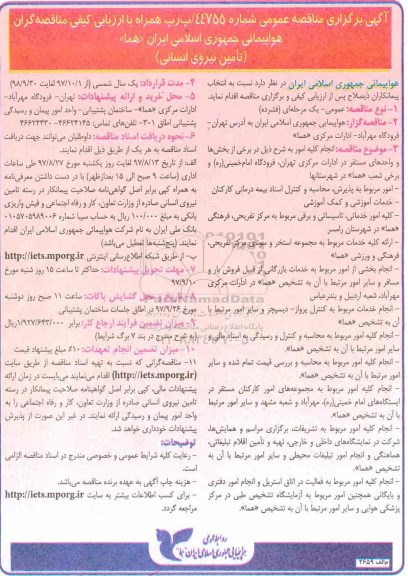 آگهی برگزاری مناقصه عمومی شماره ۴۴۷۵۵/پ‌ر‌ب همراه با ارزیابی کیفی مناقصه‌گران
هواپیمائی جمهوری اسلامی ایران «هما»
(تأمین نیروی انسانی)
هواپیمائی جمهوری اسلامی ایران در نظر دارد نسبت به انتخاب
پیمانکاران ذیصلاح پس از ارزیابی کیفی و برگزاری مناقصه اقدام نماید.
۱- نوع مناقصه: عمومی- یک مرحله‌ای (فشرده)
۲- مناقصه‌گزار: هواپیمائی جمهوری اسلامی ایران به آدرس تهران-
فرودگاه مهرآباد- ادارات مرکزی «هما»
۳- موضوع مناقصه: انجام کلیه امور به شرح ذیل در برخی از بخش‌ها
و واحدهای مستقر در ادارات مرکزی تهران، فرودگاه امام‌خمینی(ره) و
برخی شعب «هما» در شهرستانها
- امور مربوط به پذیرش، محاسبه و کنترل اسناد بیمه درمانی کارکنان
- خدمات آموزشی و کمک آموزشی
- کلیه امور خدماتی، تاسیساتی و برقی مربوط به مرکز تفریحی، فرهنگی
«هما» در شهرستان رامسر
- ارائه کلیه خدمات مربوط به مجموعه استخر و سونای مرکز تفریحی،
فرهنگی و ورزشی «هما»
- انجام بخشی از امور مربوط به خدمات بازرگانی از قبیل فروش بار و
مسافر و سایر امور مرتبط با آن به تشخیص «هما» در ادارات مرکزی
مهرآباد، شعبه اردبیل و بندرعباس
- انجام خدمات مربوط به کنترل پرواز- دیسپچر و سایر امور مرتبط با
آن به تشخیص «هما»
- انجام کلیه امور مربوط به محاسبه و کنترل و رسیدگی به اسناد مالی و
سایر امور مرتبط با آن به تشخیص «هما»
- انجام کلیه امور مربوط به محاسبه و بررسی قیمت تمام شده و سایر
امور مرتبط با آن به تشخیص «هما»
- انجام کلیه امور مربوط به مجموعه‌های امور کارکنان مستقر در
ایستگاه‌های امام خمینی(ره)، مهرآباد و شعبه مشهد و سایر امور مرتبط
با آن به تشخیص «هما»
- انجام کلیه امور مربوط به تشریفات، برگزاری مراسم و همایش‌ها،
شرکت در نمایشگاه‌های داخلی و خارجی، تهیه و تأمین اقلام تبلیغاتی،
هماهنگی و انجام تبلیغات محیطی و سایر امور مرتبط با آن به
تشخیص «هما»
- انجام کلیه امور مربوط به فعالیت در اتاق استریل و انجام امور دفتری
و بایگانی همچنین امور مربوط به آزمایشگاه تشخیص طبی در مرکز
پزشکی هوایی و سایر امور مرتبط با آن به تشخیص «هما»
۴- مدت قرارداد: یک سال شمسی (از ۹۷/۱۰/۱ لغایت ۹۸/۹/۳۰)
۵- محل خرید و ارائه پیشنهادات: تهران- فرودگاه مهرآباد-
ادارات مرکزی «هما»- ساختمان پشتیبانی- واحد امور پیمان و رسیدگی
پشتیبانی اطاق ۳۰۱- تلفن‌های تماس:
۶- نحوه دریافت اسناد مناقصه: داوطلبان می‌توانند جهت دریافت
اسناد مناقصه به هر یک از طریق ذیل اقدام نمایند.
الف: از تاریخ ۹۷/۸/۱۳ لغایت روز یکشنبه مورخ ۹۷/۸/۲۷ طی ساعات
اداری (ساعت ۹ صبح الی ۱۵ بعدازظهر) با در دست داشتن معرفی‌نامه
به همراه کپی برابر اصل گواهی‌نامه صلاحیت پیمانکار در رسته تامین
نیروی انسانی صادره از وزارت تعاون، کار و رفاه اجتماعی و فیش واریزی
بانکی به مبلغ ۱۰۰/۰۰۰ ریال به حساب سیبا شماره
بانک ملی ایران به نام شرکت هواپیمائی جمهوری اسلامی ایران اقدام
نمایند. (پنج‌شنبه‌ها تعطیل می‌باشد)
ب- از طریق شبکه اطلاع‌رسانی اینترنتی http://iets.mporg.ir
۷- مهلت تحویل پیشنهادات: حداکثر تا ساعت ۱۵ روز شنبه مورخ
۹۷/۹/۱۰
۸- تاریخ و محل گشایش پاکات: ساعت ۱۱ صبح روز دوشنبه
مورخ ۹۷/۹/۲۶ در اطاق جلسات ساختمان پشتیبانی
۹- میزان تضمین فرآیند ارجاع کار: برابر ۱/۹۲۷/۶۴۳/۰۰۰ ریال
(به شرح مندرج در بند ۷ برگ شرایط)
۱۰- میزان تضمین انجام تعهدات: ۱۰٪ مبلغ پیشنهاد قیمت
۱۱- مناقصه‌گرانی که نسبت به تهیه اسناد مناقصه از طریق سایت
(http://iets.mporg.ir) اقدام می‌نمایند می‌بایست در زمان ارائه
پیشنهادات مالی، کپی برابر اصل گواهینامه صلاحیت پیمانکار در رسته
تامین نیروی انسانی صادره از وزارت تعاون، کار و رفاه اجتماعی را به
واحد امور پیمان و رسیدگی ارائه نمایند. در غیر این صورت از پذیرش
پیشنهادات خودداری خواهد شد.
توضیحات:
- رعایت کلیه شرایط عمومی و خصوصی مندرج در اسناد مناقصه الزامی
است.
- هزینه چاپ آگهی به عهده برنده مناقصه می‌باشد.
- برای کسب اطلاعات بیشتر به سایت http://iets.mporg.ir
مراجعه گردد.
روابط عمومی
هواپیمایی جمهوری اسلامی ایران "هما"
م‌الف ۲۶۵۹